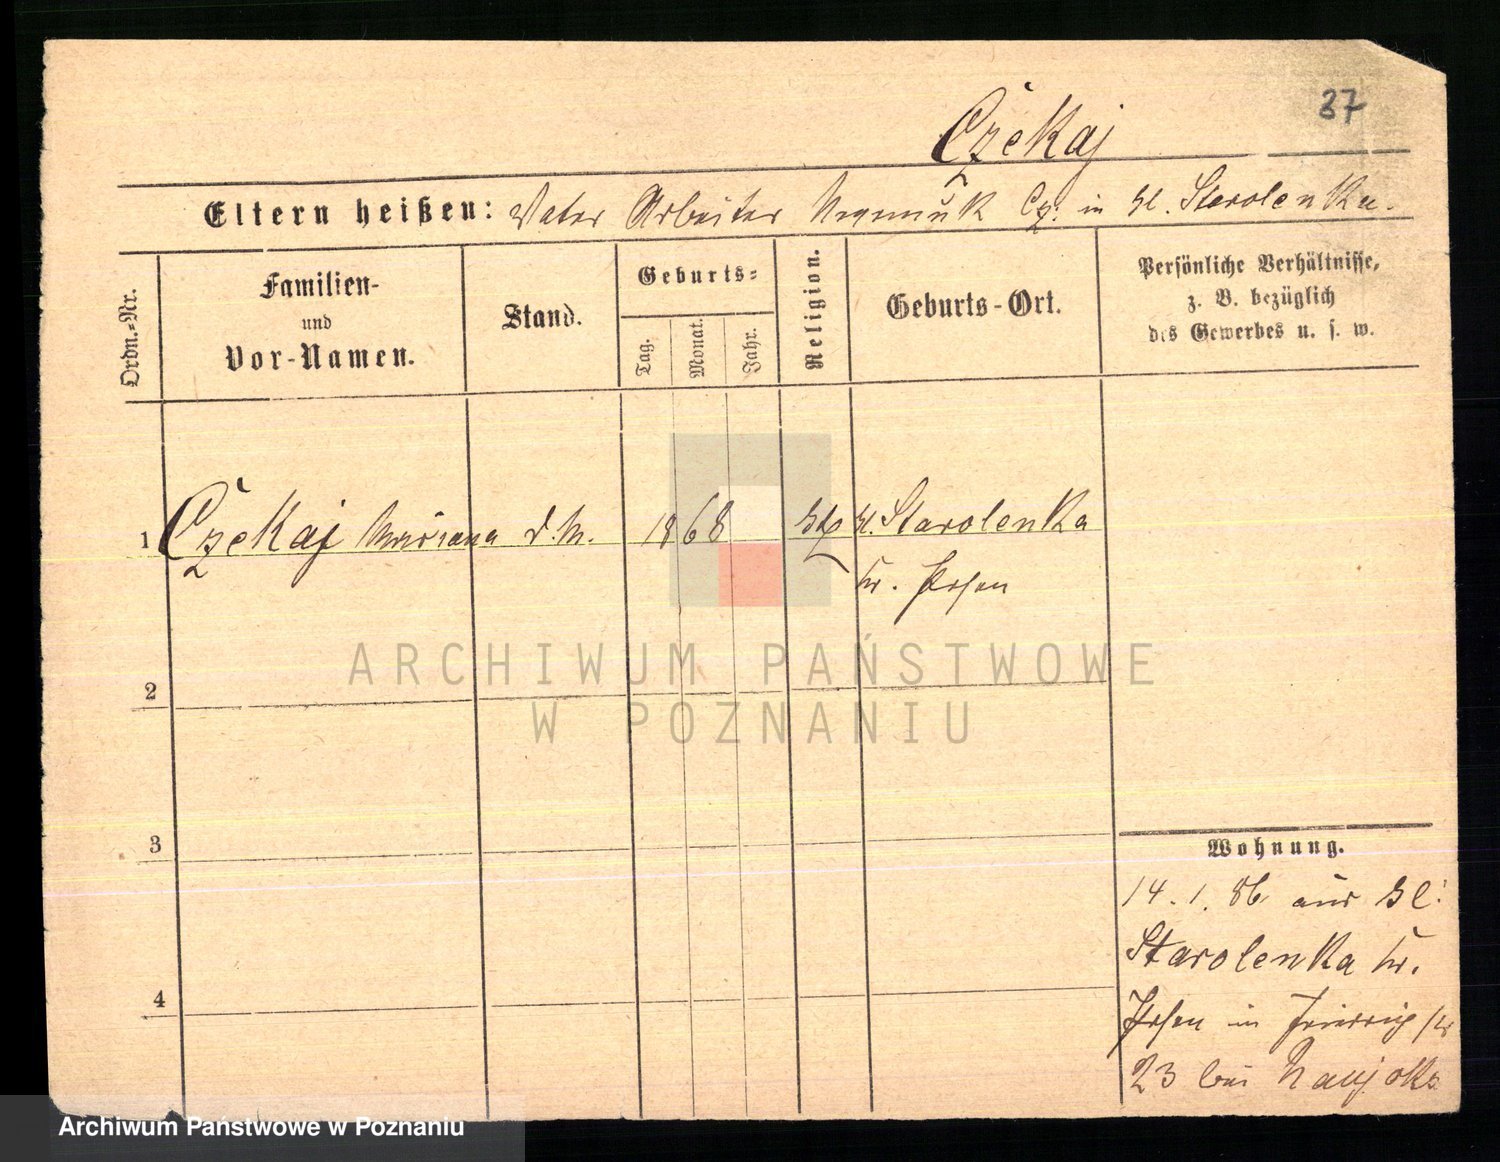 37
Czekaj
Eltern heißen: Vater Arbeiter Cz. in Kl. Starolenka.
Ordn.=Nr.
Familien-
und
Vor-Namen.
Stand.
Geburts=
Tag.
Monat.
Jahr.
Religion.
Geburts-Ort.
Persönliche Verhältnisse,
z. B. bezüglich
des Gewerbes u. s. w.
1 Czekaj Mariana d. M. 1868 kth Kl. Starolenka
Kr. Posen
ARCHIWUM PAŃSTWOWE
W POZNANIU
2
3
4
Wohnung.
14. 1. 86 aus Kl:
Starolenka Kr.
Posen in
23 bei Naujoks
Archiwum Państwowe w Poznaniu